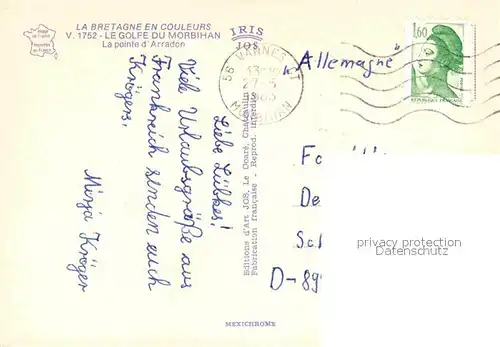 LA BRETAGNE EN COULEURS
V. 1752 - LE GOLFE DU MORBIHAN
La pointe d'Arradon
IRIS
JOS
56 VANNES
27-5
MORBIHAN
1,60
REPUBLIQUE FRANÇAISE
"Allemagne"
Liebe Lübkes!
Viele Urlaubsgrüße aus
Frankreich senden euch
Krögers.
Minja Kröger
Editions d'Art JOS, Le Doaré, Châteaulin
Fabrication française - Reprod. interdite
De
D-89
privacy protection
Datenschutz
MEXICHROME